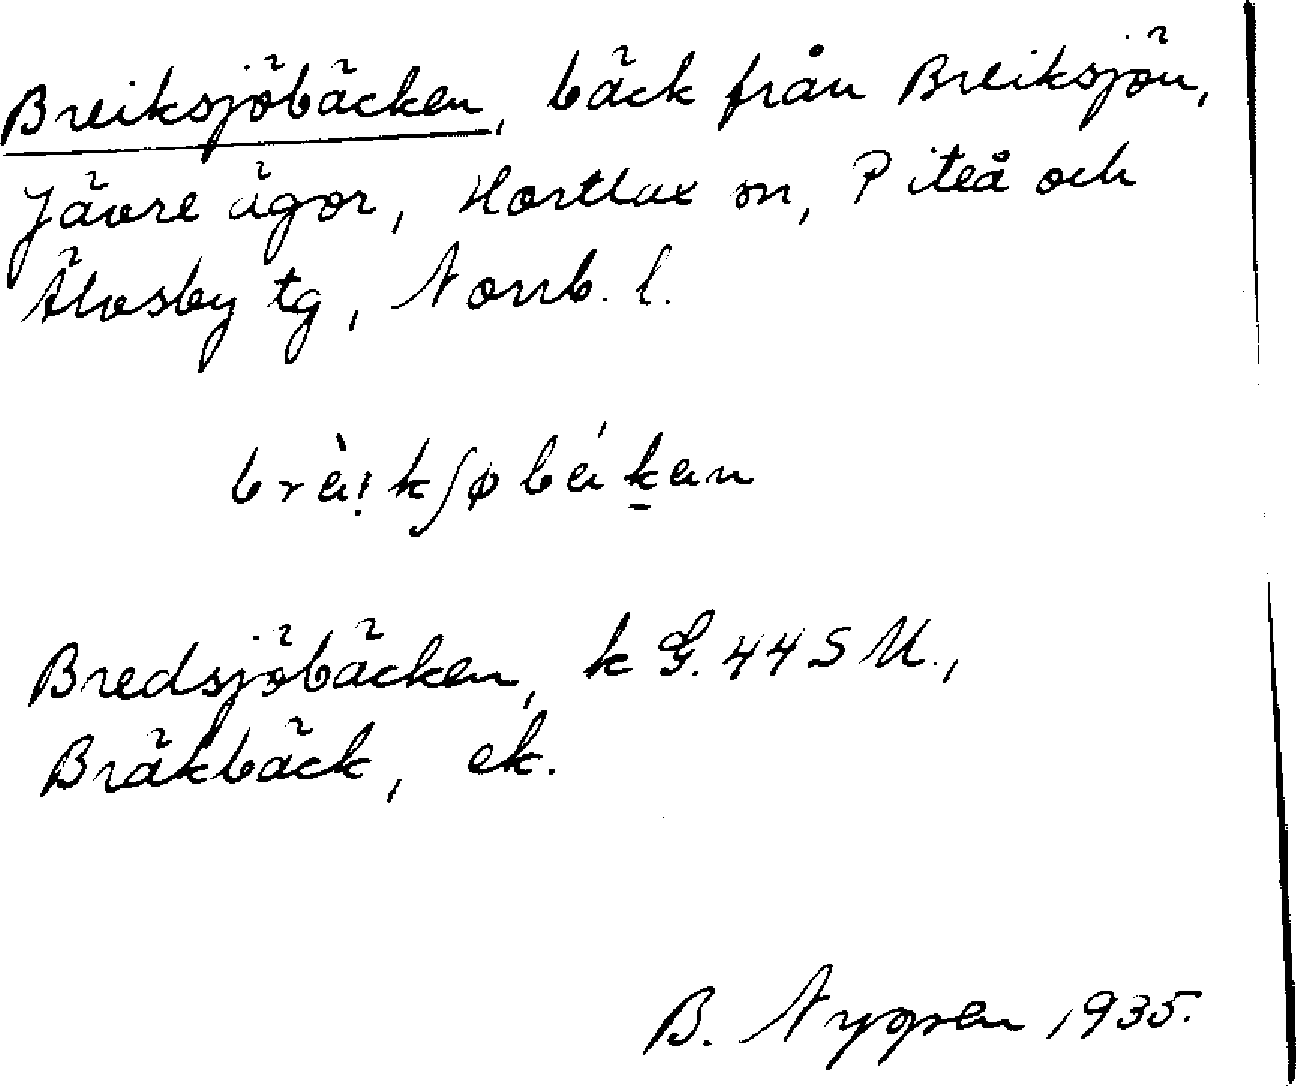 Breiksjöbäcken, bäck från Breiksjön,
Jävre ägor, Hortlax sn, Piteå och
Älvsby tg, Norrb. l.
Bredsjöbäcken, k G. 44 S M.,
Bräkbäck, ek.
B. Nygren 1935.